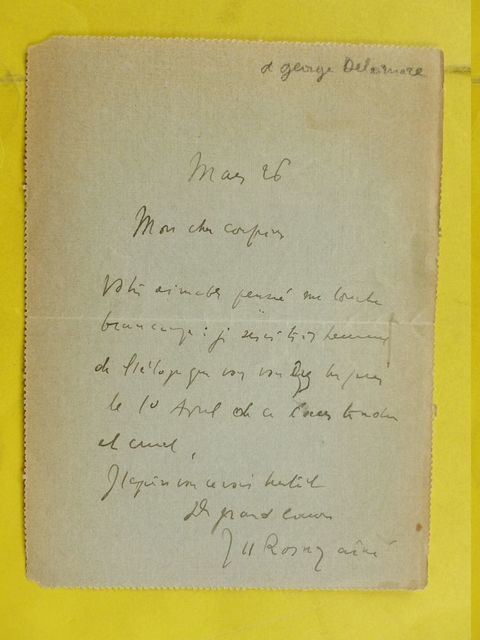 à george Delamare
Mars 26
Mon cher confrère
Votre aimable pensée me touche
beaucoup : je serais très heureux
de l'éloge que vous
le 10 Avril et tendre
et cruel,
J'espère vous revoir bientôt
De grand coeur
J H Rosny aîné